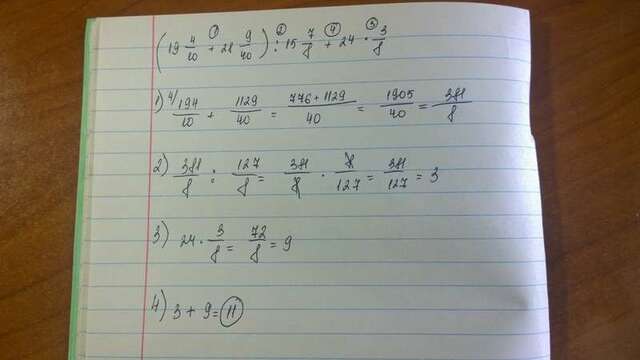 (19 4/10 + 28 9/40) : 15 7/8 + 24 · 3/8 ① ② ④ ③
1) 4/ 194/10 + 1129/40 = 776+1129/40 = 1905/40 = 381/8
2) 381/8 : 127/8 = 381/8 · 8/127 = 381/127 = 3
3) 24 · 3/8 = 72/8 = 9
4) 3 + 9 = 11